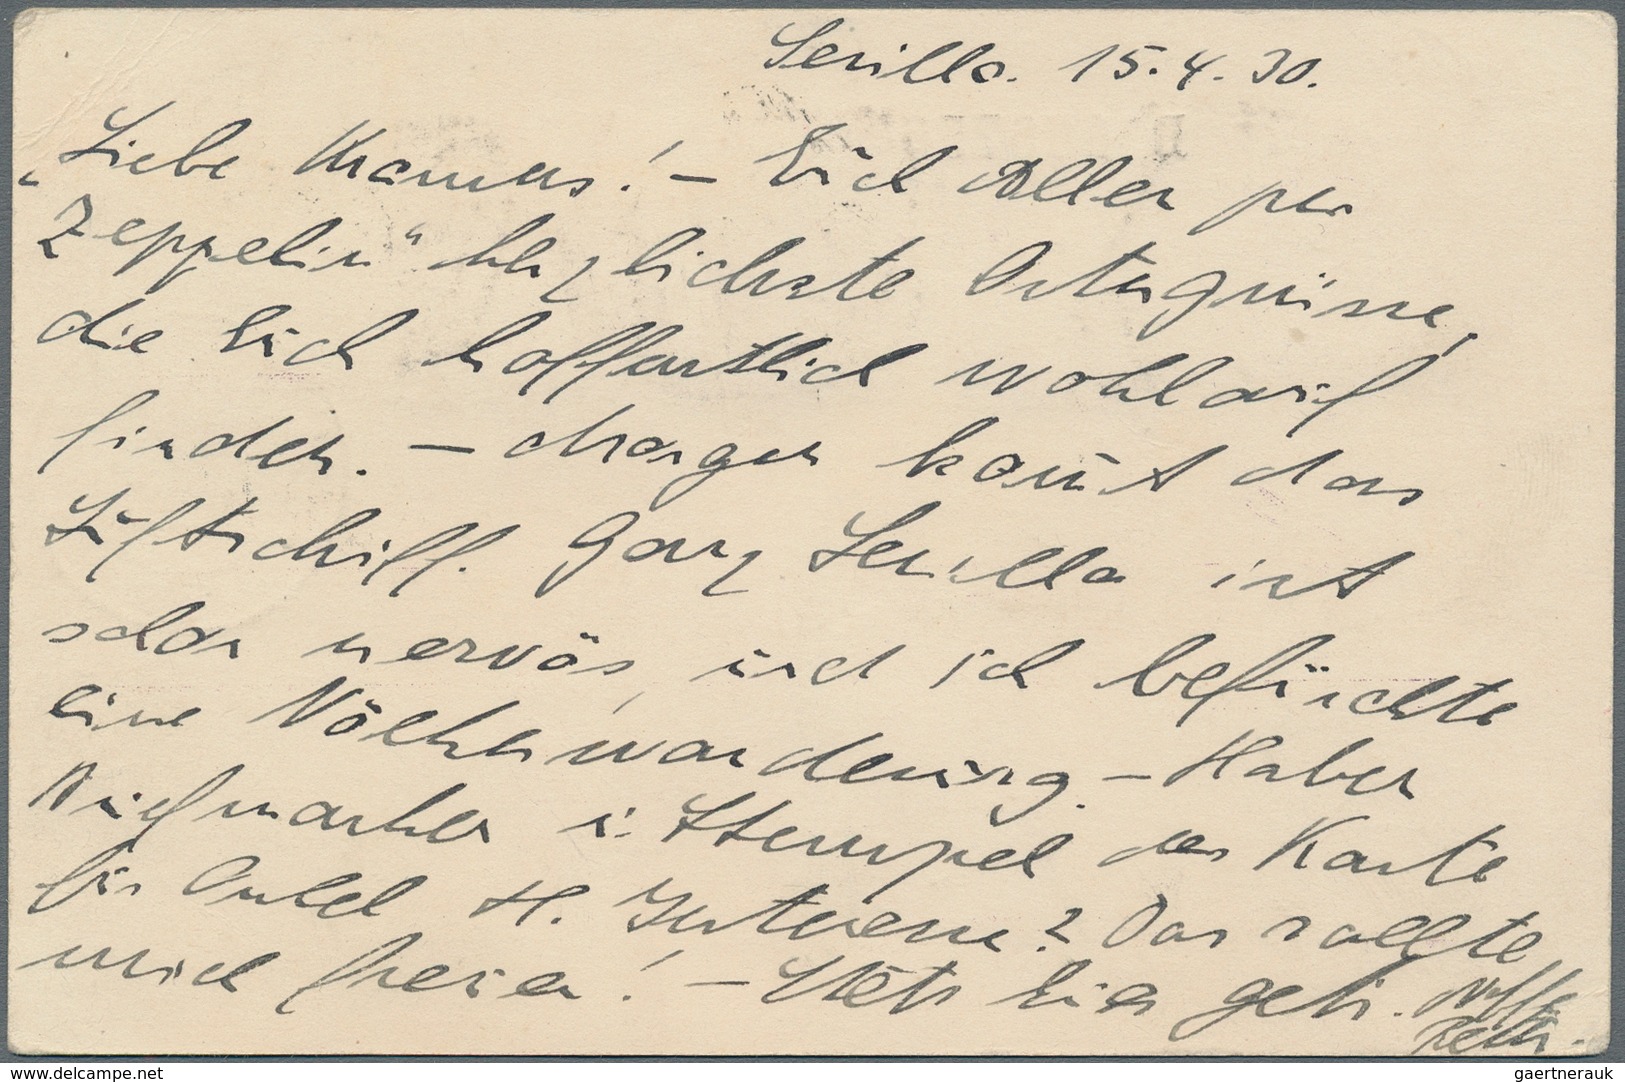 Sevilla. 15.4.30.
Liebe Mamus! – Euch Allen per
„Zeppelin“ herzlichste Ostergrüsse,
die Euch hoffentlich wohlauf
finden. – Morgen kom̄t das
Luftschiff. Ganz Sevilla ist
schon nervös, und ich befürchte
eine Völkerwanderung. – Haben
Briefmarken u. Stempel der Karte
für Onkel H. Interesse? Das sollte
mich freuen! – Stets Euer getr.
www.delcampe.net
gaertnerauk